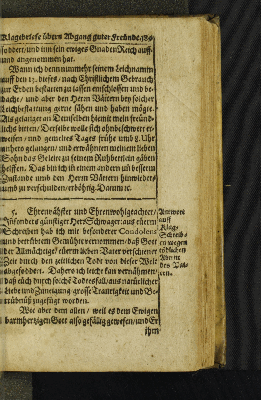 Klagebriefe übers Absang guter Freunde. 189
foddert / und inn sein ewiges Gnaden Reich auff-
und angenommen hat.
Wann ich denn nunmehr seinem Leichnamm
auff den 12. dieses / nach Christlichem Gebrauch
zur Erden bestatten zu lassen entschlossen und be-
dacht / und aber den Herrn Vättern bey solcher
Leichbestattung gerne sähen und haben möchte.
Als gelanget an Demselben hiemit mein freund-
lichs bitten / Derselbe wolle sich ohnbeschwert er-
weisen / und gemeltes Tages frühe umb 8. Uhr
anhero gelangen / und erwähntem meinem lieben
Sohn das Geleite zu seinem Ruhbettlein gäben
helffen. Das bin ich in einem andern uff bessern
Zustande umb den Herrn Vättern hinwieder-
umb zu verschulden / erböhtig. Datum &c.
5. Ehrenväster und Ehrenwohlgeachter /
insonders günstiger Herr Schwager: aus eürem
Schreiben hab ich mit besonderer Condolens
und betrübtem Gemühte vernommen / daß Gott
der Allmächtige / eüern lieben Vater verschiener
Zeit durch den zeitlichen Tode von dieser Welt
abgefoddert. Dahero ich leicht kan vernähmen /
daß eüch durch solchs Todesfall / aus natürlicher
Liebe und Zuneigung grosse Traurigkeit und Be-
trübnüß zugefügt worden.
Wie aber dem allen / weil es dem Ewigen
barmhertzigen Gott also gefällig gewesen / und Er
ihm
Antwort
auff
Klag-
Schreib-
en wegen
tödlichen
Abn
des Va-
ters.